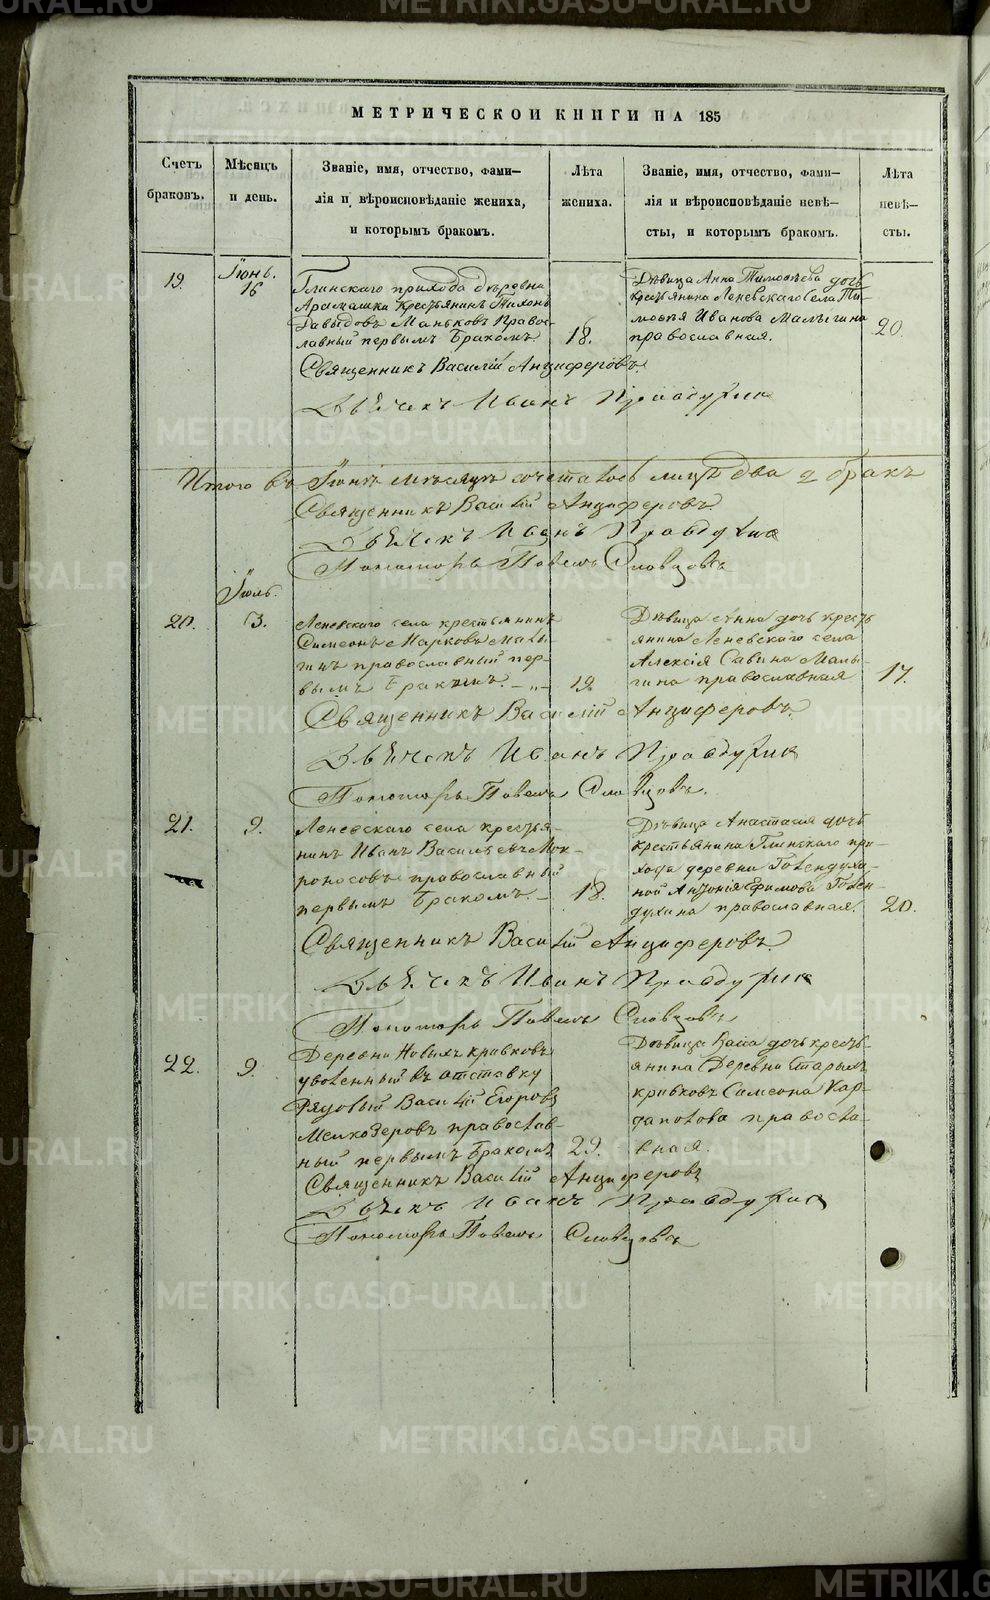 МЕТРИЧЕСКОЙ КНИГИ НА 185
Счетъ браковъ.
Мѣсяцъ и день.
Званіе, имя, отчество, фами-
лія и вѣроисповѣданіе жениха,
и которымъ бракомъ.
Лѣта жениха.
Званіе, имя, отчество, фами-
лія и вѣроисповѣданіе невѣ-
сты, и которымъ бракомъ.
Лѣта невѣ-
сты.
19.
Іюнь.
16
Глинскаго прихода деревни
Арамашки Крестьянинъ Тихонъ
Давыдовъ Маньковъ Правос-
лавный первымъ бракомъ.
18.
Дѣвица Анна Тимофѣева дочь
крестьянина Леневскаго Села Ти-
мофѣя Иванова Малыгина
православная.
20.
Священникъ Василій Анциферовъ
Дьячекъ Иванъ
Итого въ Іюнѣ мѣсяцѣ два 2 бракъ
Священникъ Василій Анциферовъ.
Дьячекъ Иванъ
Пономарь Павелъ Словцовъ
Іюль.
20.
3.
Леневскаго села крестьянинъ
Симеонъ Марковъ Малы-
гинъ православный пер-
вымъ бракомъ. - „ -
19.
Дѣвица Анна дочь кресть
янина Леневскаго села
Алексія Савина Малы-
гина православная
17.
Священникъ Василій Анциферовъ.
Дьячекъ Иванъ
Пономарь Павелъ Словцовъ.
21.
9.
Леневскаго села крестья-
нинъ Иванъ Васильевъ Мок-
роносовъ православный
первымъ бракомъ. -
18.
Дѣвица Анастасія дочь
крестьянина Глинскаго при-
хода деревни Голендухи-
ной Антонія Ефимова Голен-
духина православная.
20.
Священникъ Василій Анциферовъ
Дьячекъ Иванъ
Пономарь Павелъ Словцовъ
22.
9.
Деревни Новыхъ кривковъ
уволенный въ отставку
Рядовый Василій Егоровъ
Мелкозеровъ православ-
ный первымъ бракомъ
29.
Дѣвица дочь кресть-
янина Деревни Старыхъ
кривковъ Симеона Кар-
православная.
Священникъ Василій Анциферовъ
Дьячекъ Иванъ
Пономарь Павелъ Словцовъ
METRIKI.GASO-URAL.RU